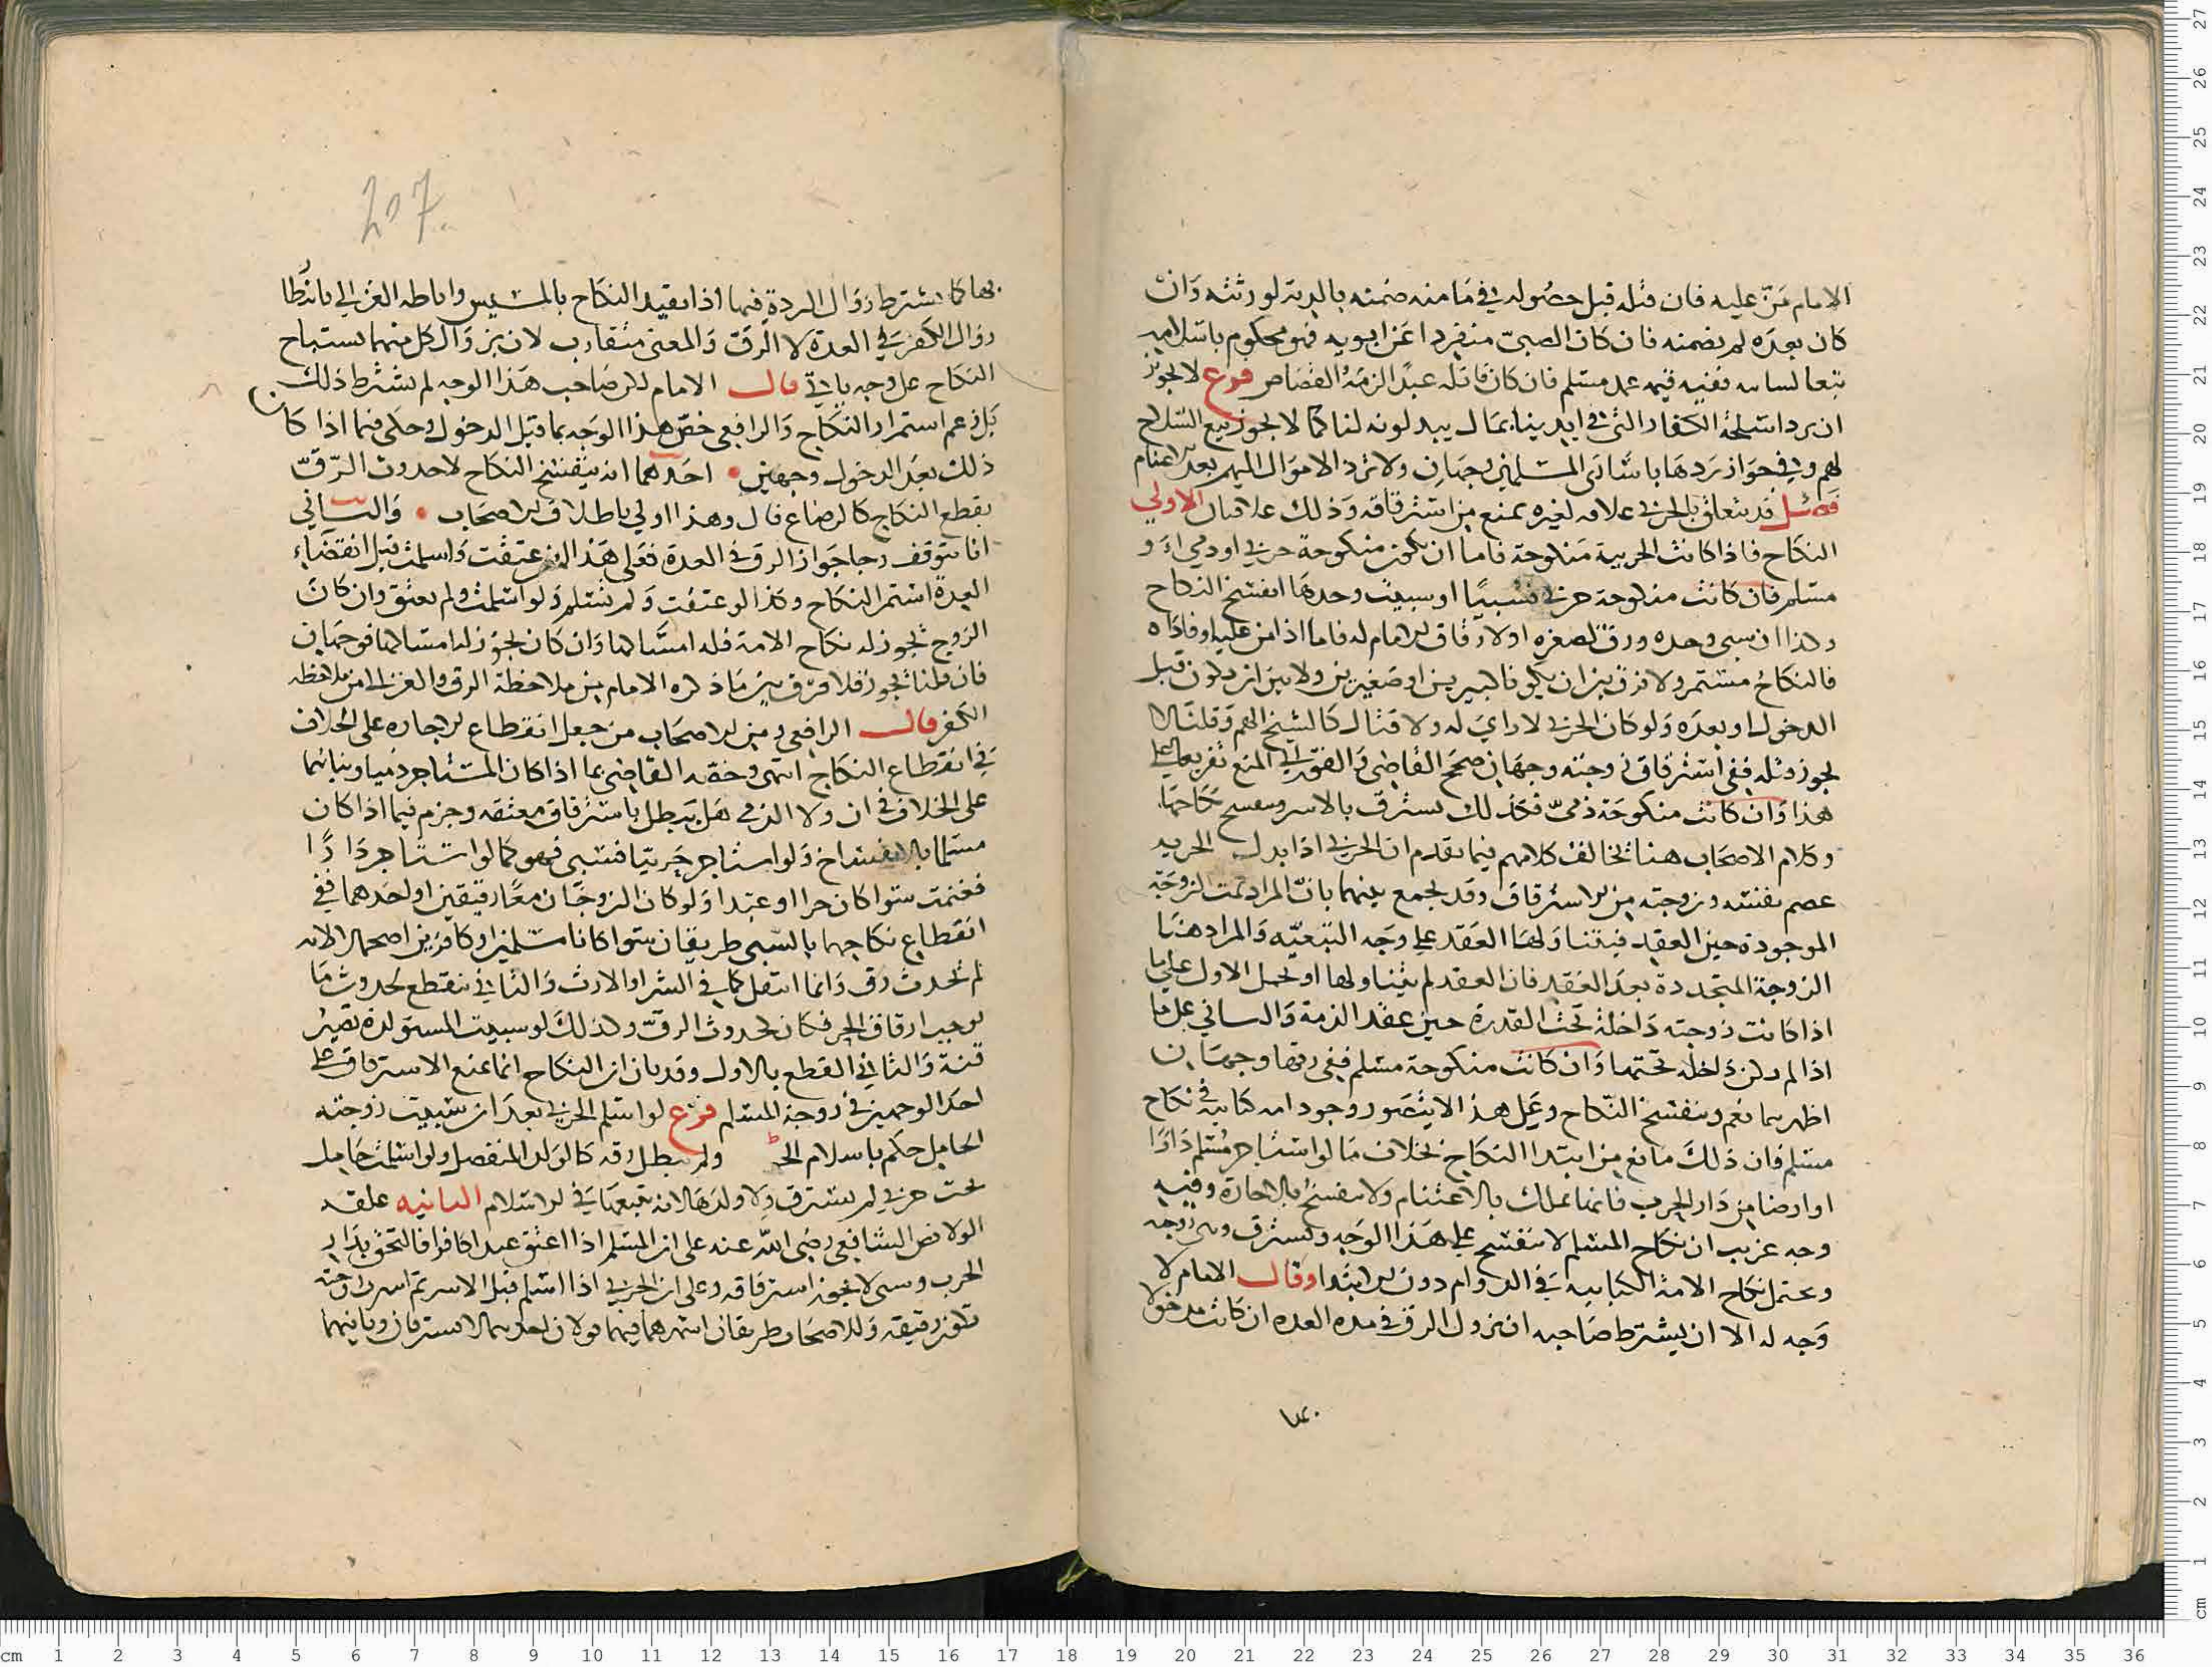 الامام مَنّ عليه فان قتله قبل حصوله في مَامنه ضمنه بالدية لورثته وَان
كان بعده لم يضمنه فان كان الصبيّ منفردا عَن ابويه فهو محكوم باسلامه
تبعا لسابيه ففيه قيمه عبد مسلم فان كان قاتله عبدًا لزمَهُ القصَاص فرع لا يجوز
ان يرد اسلحة الكفار التي في ايدينا بمَال يبدلونه لنا كما لا يجوز بيع السّلاح
لهم وفي جوَاز رَدهَا باسَارَى المسلمين وجهَان ولا ترد الاموَال اليهم بعد اغتنام
فَصْل قد يتعلق بالحربي علاقه لغيره تمنع من استرقاقه وَذلك علاقتان الاولى
النكاح فاذا كانت الحربية مَنكوحة فاما ان تكون منكوحة حربي او ذمي اَ و
مسلم فان كانت منكوحة حربي فسُبيَا او سبيت وحدهَا انفسخ النكاح
وكذا ان سبي وحده ورق لصغره او لارقاق الامام له فاما اذا من عليه او فاداه
فالنكاحُ مستمر ولا فرق بين ان يكونا كبيرين او صَغيرين ولا بين ان يكون قبل
الدخول او بعدَه وَلو كان الحربي لا رايَ له ولا قتال كالشيخ الهم وَقلنَا لا
يجوز قتله ففي استرقاق زوجته وجهَان صحح القاضي وَالفوراني المنع تفريعا على
هذا وَان كانت منكوحَة ذميّ فكذلك تسترق بالاسر وينفسخ نكاحهَا
وكلام الاصحَاب هنا يخالف كلامهم فيما تقدم ان الحربي اذا بذل الجزيه
عصم نفسَه وزوجته من الاسترقاق وقد يجمع بينهما بانّ المراد ثمت الزوجَة
الموجودة حين العقد فيتنَاوَلهَا العَقد على وَجه التبعيّه وَالمراد هنَا
الزوجَة المتجددة بعدَ العَقد فان العقد لم يتناولها او يحمل الاول على ما
اذا كانت زوجته دَاخلة تحت القدرة حين عقد الذمة وَالثاني على ما
اذا لم تكن داخله تحتهما وَان كانت منكوحة مسلم ففي رقها وجهَان
اظهرهما نعم وينفسخ النّكاح وعَلى هذا لا يتصَور وجود امه كتابية في نكاح
مسلم فان ذلك مَانع من ابتدا النكاح بخلاف مَا لو استاجر مُسلم دَارًا
او ارضا من دَار الحرب فانها تملك بالاغتنام ولا تنفسخ الاجارة وفيه
وجه غريب ان نكاح المسلم لا ينفسخ على هَذا الوَجه وتسترق وهي زوجه
ويحتمل نكاح الامة الكتابيه في الدوام دون الابتدا وقال الامام لا
وَجه له الا ان يشترط صَاحبه ان يزول الرق في مده العده ان كانت مدخولا
بها كما يشترط زوَال الردة فيها اذا بقيد النكاح بالمسيس واباطه الغزالي بانتظا
زوَال الكفر في العدة لا الرقّ وَالمعنى متقارب لان بزوَال كل منهما يستباح
النكاح على وجه ياتي قال الامام لكن صَاحب هَذا الوجه لم يشترط ذلك
بَل زعم استمرار النكاح وَالرافعي خصّ هذا الوَجه بما قبل الدخول وحكى فيما اذا كان
ذلك بعدَ الدخول وجهين احَدهما انه ينفسخ النكاح لاحدوث الرّقّ
يقطع النكاح كالرضاع قال وهذا اولي باطلاق الاصحَاب وَالثاني
انا نتوقف رجا جَواز الرق في العدة فعَلى هَذا ان عتقت وَاسلمت قبل انقضَاء
العدة استمر النكاح وكذا لو عتقت وَلم تسلم وَلو اسلمت ولم تعتق وان كانَ
الزوج يجوز له نكاح الامة فله امسَاكها وَان كان لا يجوز له امسَاكها فوجهَان
فان قلنا يجوز فلا فرّق بين مَا ذكره الامام من ملاحظة الرق والغزالي من ملاحظه
الكفر قال الرافعي ومن الاصحَاب من جعل انقطاع الاجاره على الخلاف
في انقطاع النكاح انتهى وخصّه القاضي بما اذا كان المستاجر ذميا وبنَاهُما
على الخلاف في ان ولا الذمي هَل يَبطل باسترقاق معتقه وجزم فيما اذا كان
مسلما بالانفساخ وَلو استاجر حَربيّا فسبي فهو كما لو استاجر دَارًا
فغنمت سَوا كان حرا او عبدا وَلو كان الزوجَان معًا رقيقين او احَدهما ففي
انقطاع نكاحهما بالسّبي طريقان سَوا كانا مسلمين او كافرين اصحهما لا لانه
لم يحدث رق وَانما انتقل كما في الشرا والارث وَالثاني ينقطع لحدوث مَا
يوجب ارقاق الحر فكان لحدوث الرقّ وكذلكَ لو سبيت المستولدة تصيرُ
قنة وَالثاني القطع بالاول وقد بان ان النكاح انما يمنع الاسترقاق على
احد الوجهين في زوجة المسلم فرع لو اسلم الحربي بعدَ ان سُبيت زوجته
الحامل حكم باسلام الحمل ولم يبطل رقه كالوَلد المنفصل ولو اسلمت حَامل
تحت حربي لم تسترق وِلا ولدهَا لانه يتبعهَا في الاسلام الثانيه علقه
الولا نص الشافعي رضي الله عنه على ان المسلم اذا اعتق عبدا كافرا فالتحق بدَار
الحرب وسبي لا يجوز استرقاقه وعلى ان الحربي اذا اسلم قبل الاسر ثم اسرت زوجته
تكون رقيقه وَللاصحَاب طريقان اشهرهما فيهما قولان احدهما لا يسترقان وثانيهما